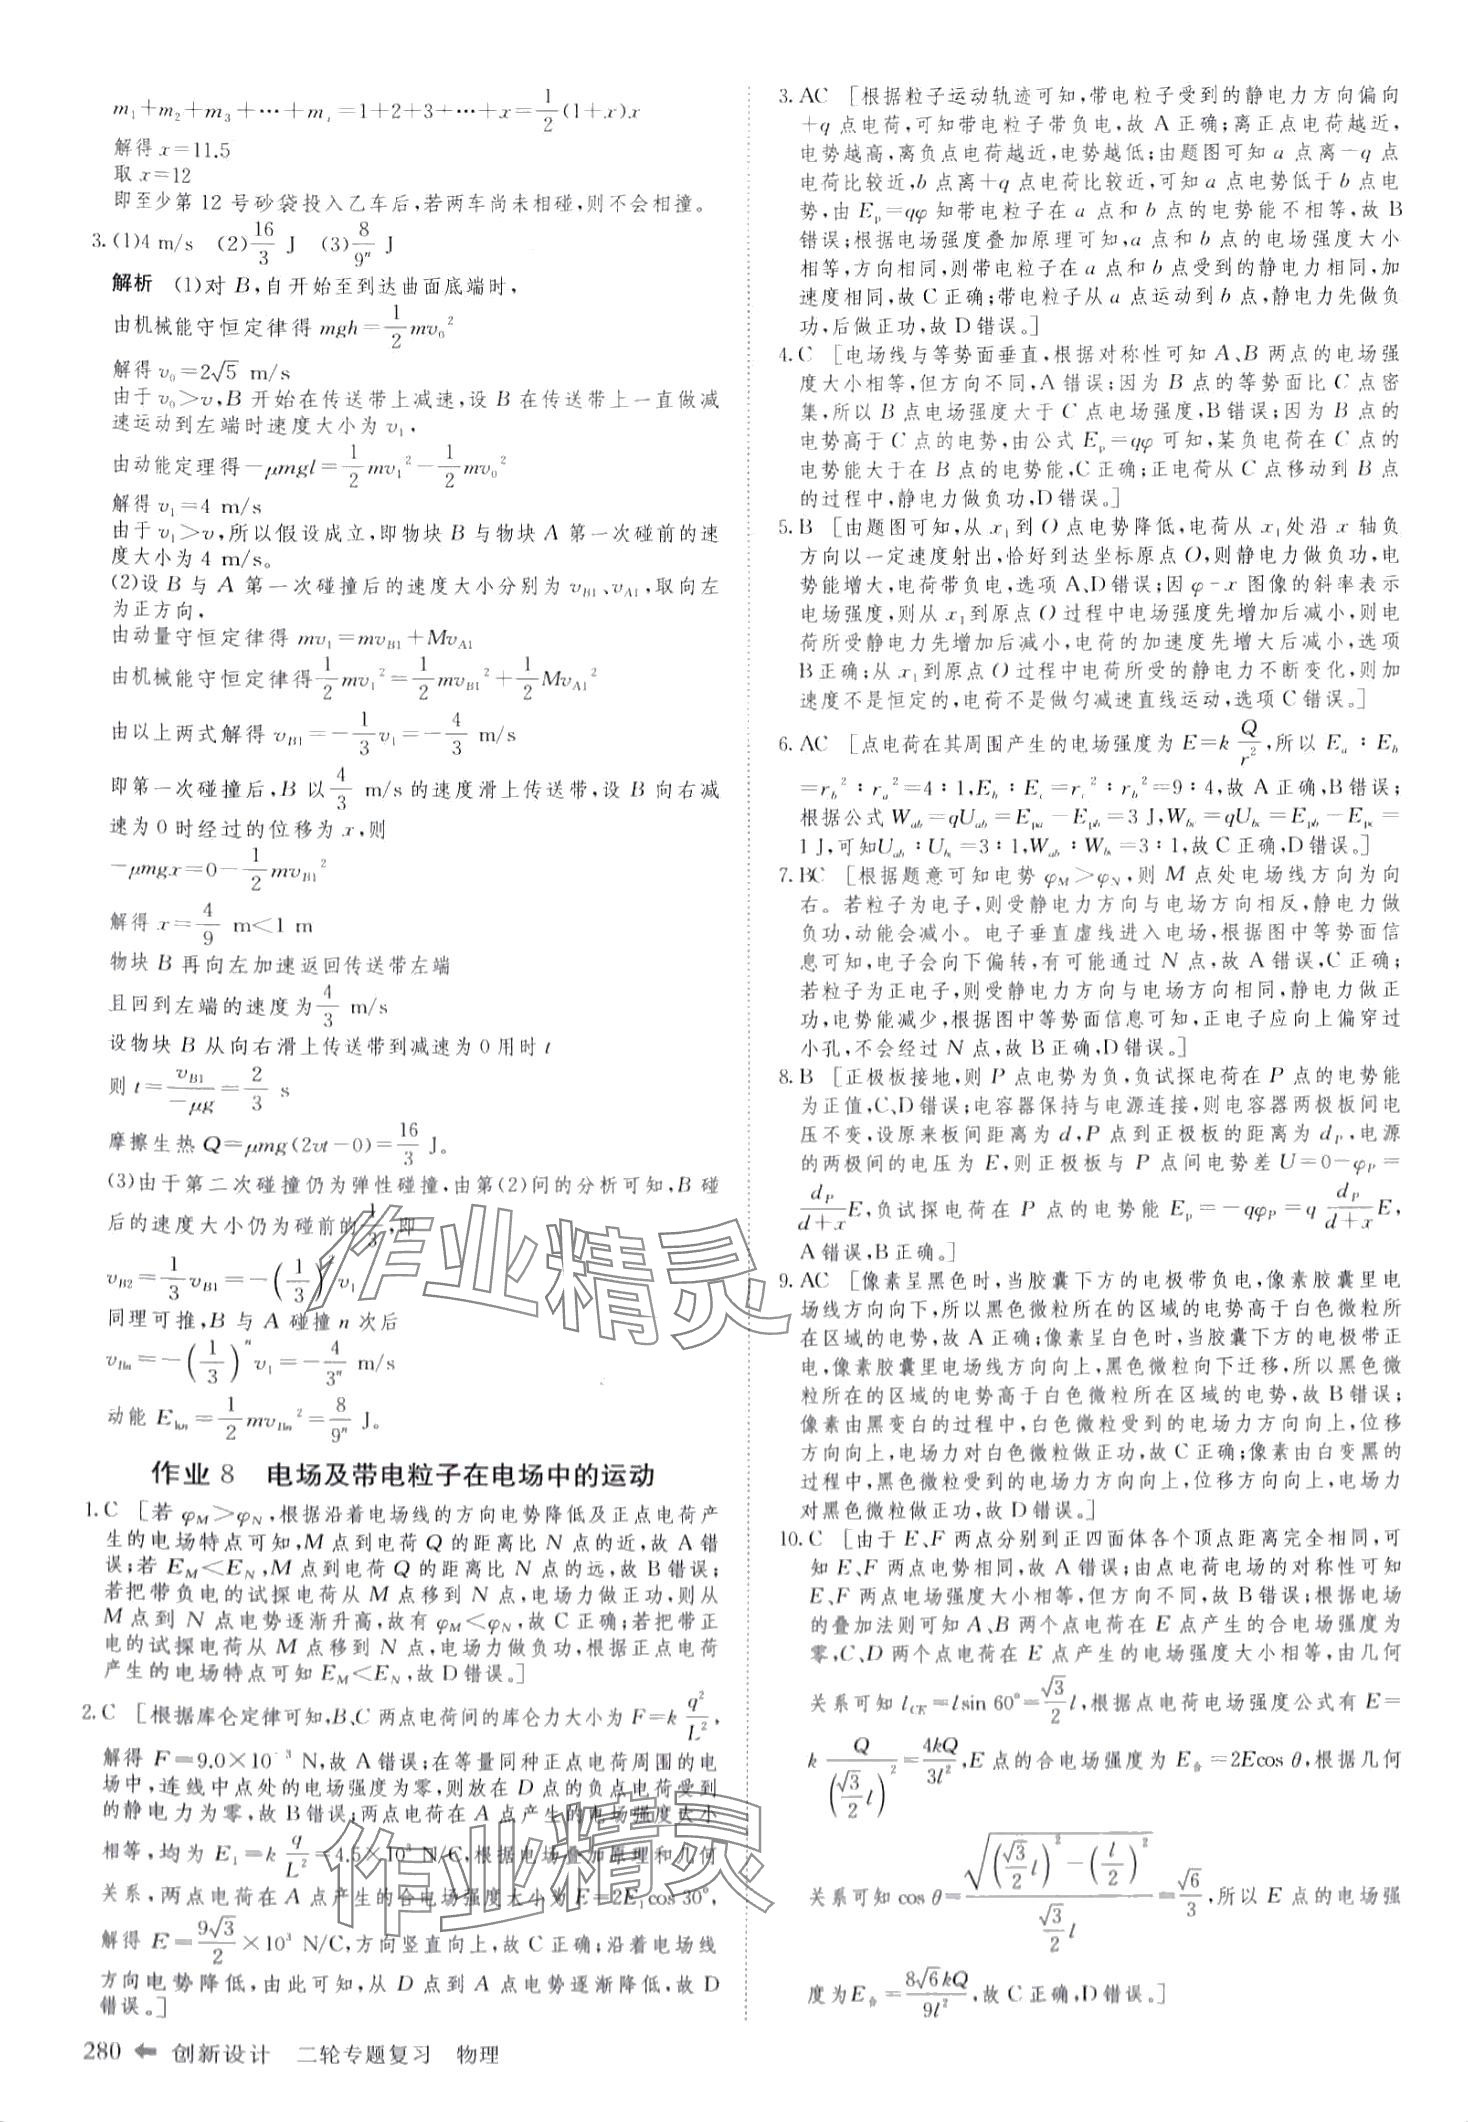 m₁+m₂+m₃+…+mₓ=1+2+3+…+x=1/2(1+x)x
解得 x=11.5
取 x=12
即至少第 12 号砂袋投入乙车后,若两车尚未相碰,则不会相撞。
3.(1)4 m/s (2)16/3 J (3)8/9ⁿ J
解析 (1)对 B,自开始至到达曲面底端时,
由机械能守恒定律得 mgh=1/2mv₀²
解得 v₀=2√5 m/s
由于 v₀>v,B 开始在传送带上减速,设 B 在传送带上一直做减
速运动到左端时速度大小为 v₁,
由动能定理得-μmgl=1/2mv₁²-1/2mv₀²
解得 v₁=4 m/s
由于 v₁>v,所以假设成立,即物块 B 与物块 A 第一次碰前的速
度大小为 4 m/s。
(2)设 B 与 A 第一次碰撞后的速度大小分别为 v_B1、v_A1,取向左
为正方向,
由动量守恒定律得 mv₁=mv_B1+Mv_A1
由机械能守恒定律得1/2mv₁²=1/2mv_B1²+1/2Mv_A1²
由以上两式解得 v_B1=-1/3v₁=-4/3 m/s
即第一次碰撞后,B 以4/3 m/s的速度滑上传送带,设 B 向右减
速为0时经过的位移为 x,则
-μmgx=0-1/2mv_B1²
解得 x=4/9 m<1 m
物块 B 再向左加速返回传送带左端
且回到左端的速度为4/3 m/s
设物块 B 从向右滑上传送带到减速为 0 用时 t
则 t=v_B1/-μg=2/3 s
摩擦生热 Q=μmg(2vt-0)=16/3 J。
(3)由于第二次碰撞仍为弹性碰撞,由第(2)问的分析可知,B 碰
后的速度大小仍为碰前的1/3,即
v_B2=1/3v_B1=-(1/3)²v₁
同理可推,B 与 A 碰撞 n 次后
v_Bn=-(1/3)ⁿv₁=-4/3ⁿ m/s
动能 E_kn=1/2mv_Bn²=8/9ⁿ J。
作业 8 电场及带电粒子在电场中的运动
1.C [若 φ_M>φ_N,根据沿着电场线的方向电势降低及正点电荷产
生的电场特点可知,M点到电荷 Q 的距离比 N 点的近,故 A 错
误;若 E_M<E_N,M 点到电荷 Q 的距离比 N 点的远,故 B 错误;
若把带负电的试探电荷从 M 点移到 N 点,电场力做正功,则从
M 点到 N 点电势逐渐升高,故有 φ_M<φ_N,故 C 正确;若把带正
电的试探电荷从 M 点移到 N 点,电场力做负功,根据正点电荷
产生的电场特点可知 E_M<E_N,故 D 错误。]
2.C [根据库仑定律可知,B、C 两点电荷间的库仑力大小为 F=k q²/L²,
解得 F=9.0×10⁻³ N,故 A 错误;在等量同种正点电荷周围的电
场中,连线中点处的电场强度为零,则放在 D 点的负点电荷受到
的静电力为零,故 B 错误;两点电荷在 A 点产生的电场强度大小
相等,均为 E₁=k q/L²=4.5×10³ N/C,根据电场叠加原理和几何
关系,两点电荷在 A 点产生的合电场强度大小为 E=2E₁cos 30°,
解得 E=9√3/2×10³ N/C,方向竖直向上,故 C 正确;沿着电场线
方向电势降低,由此可知,从 D 点到 A 点电势逐渐降低,故 D
错误。]
280 创新设计 二轮专题复习 物理
3.AC [根据粒子运动轨迹可知,带电粒子受到的静电力方向偏向
+q 点电荷,可知带电粒子带负电,故 A 正确;离正点电荷越近,
电势越高,离负点电荷越近,电势越低;由题图可知 a 点离-q 点
电荷比较近,b 点离+q 点电荷比较近,可知 a 点电势低于 b 点电
势,由 E_p=qφ 知带电粒子在 a 点和 b 点的电势能不相等,故 B
错误;根据电场强度叠加原理可知,a 点和 b 点的电场强度大小
相等,方向相同,则带电粒子在 a 点和 b 点受到的静电力相同,加
速度相同,故 C 正确;带电粒子从 a 点运动到 b 点,静电力先做负
功,后做正功,故 D 错误。]
4.C [电场线与等势面垂直,根据对称性可知 A、B 两点的电场强
度大小相等,但方向不同,A 错误;因为 B 点的等势面比 C 点密
集,所以 B 点电场强度大于 C 点电场强度,B 错误;因为 B 点的
电势高于 C 点的电势,由公式 E_p=qφ 可知,某负电荷在 C 点的
电势能大于在 B 点的电势能,C 正确;正电荷从 C 点移动到 B 点
的过程中,静电力做负功,D 错误。]
5.B [由题图可知,从 x₁ 到 O 点电势降低,电荷从 x₁ 处沿 x 轴负
方向以一定速度射出,恰好到达坐标原点 O,则静电力做负功,电
势能增大,电荷带负电,选项 A、D 错误;因 φ-x 图像的斜率表示
电场强度,则从 x₁ 到原点 O 过程中电场强度先增加后减小,则电
荷所受静电力先增加后减小,电荷的加速度先增大后减小,选项
B 正确;从 x₁ 到原点 O 过程中电荷所受的静电力不断变化,则加
速度不是恒定的,电荷不是做匀减速直线运动,选项 C 错误。]
6.AC [点电荷在其周围产生的电场强度为 E=k Q/r²,所以 E_a∶E_b
=r_b²∶r_a²=4∶1,E_b∶E_c=r_c²∶r_b²=9∶4,故 A 正确,B 错误;
根据公式 W_ab=qU_ab=E_pa-E_pb=3 J,W_bc=qU_bc=E_pb-E_pc=
1 J,可知U_ab∶U_bc=3∶1,W_ab∶W_bc=3∶1,故 C 正确,D 错误。]
7.BC [根据题意可知电势 φ_M>φ_N,则 M 点处电场线方向为向
右。若粒子为电子,则受静电力方向与电场方向相反,静电力做
负功,动能会减小。电子垂直虚线进入电场,根据图中等势面信
息可知,电子会向下偏转,有可能通过 N 点,故 A 错误,C 正确;
若粒子为正电子,则受静电力方向与电场方向相同,静电力做正
功,电势能减少,根据图中等势面信息可知,正电子应向上偏穿过
小孔,不会经过 N 点,故 B 正确,D 错误。]
8.B [正极板接地,则 P 点电势为负,负试探电荷在 P 点的电势能
为正值,C、D 错误;电容器保持与电源连接,则电容器两极板间电
压不变,设原来板间距离为 d,P 点到正极板的距离为 d_P,电源
的两极间的电压为 E,则正极板与 P 点间电势差 U=0-φ_P=
d_P/(d+x)E,负试探电荷在 P 点的电势能 E_p=-qφ_P=q d_P/(d+x)E,
A 错误,B 正确。]
9.AC [像素呈黑色时,当胶囊下方的电极带负电,像素胶囊里电
场线方向向下,所以黑色微粒所在的区域的电势高于白色微粒所
在区域的电势,故 A 正确;像素呈白色时,当胶囊下方的电极带正
电,像素胶囊里电场线方向向上,黑色微粒向下迁移,所以黑色微
粒所在的区域的电势高于白色微粒所在区域的电势,故 B 错误;
像素由黑变白的过程中,白色微粒受到的电场力方向向上,位移
方向向上,电场力对白色微粒做正功,故 C 正确;像素由白变黑的
过程中,黑色微粒受到的电场力方向向上,位移方向向上,电场力
对黑色微粒做正功,故 D 错误。]
10.C [由于 E、F 两点分别到正四面体各个顶点距离完全相同,可
知 E、F 两点电势相同,故 A 错误;由点电荷电场的对称性可知
E、F 两点电场强度大小相等,但方向不同,故 B 错误;根据电场
的叠加法则可知 A、B 两个点电荷在 E 点产生的合电场强度为
零,C、D 两个点电荷在 E 点产生的电场强度大小相等,由几何
关系可知 l_CE=lsin 60°=√3/2 l,根据点电荷电场强度公式有 E=
k Q/(√3/2 l)²=4kQ/3l²,E 点的合电场强度为 E合=2Ecos θ,根据几何
关系可知 cos θ=√((√3/2 l)²-(l/2)²)/(√3/2 l)=√6/3,所以 E 点的电场强
度为E合=8√6kQ/9l²,故 C 正确,D 错误。]
作业精灵
作业精灵